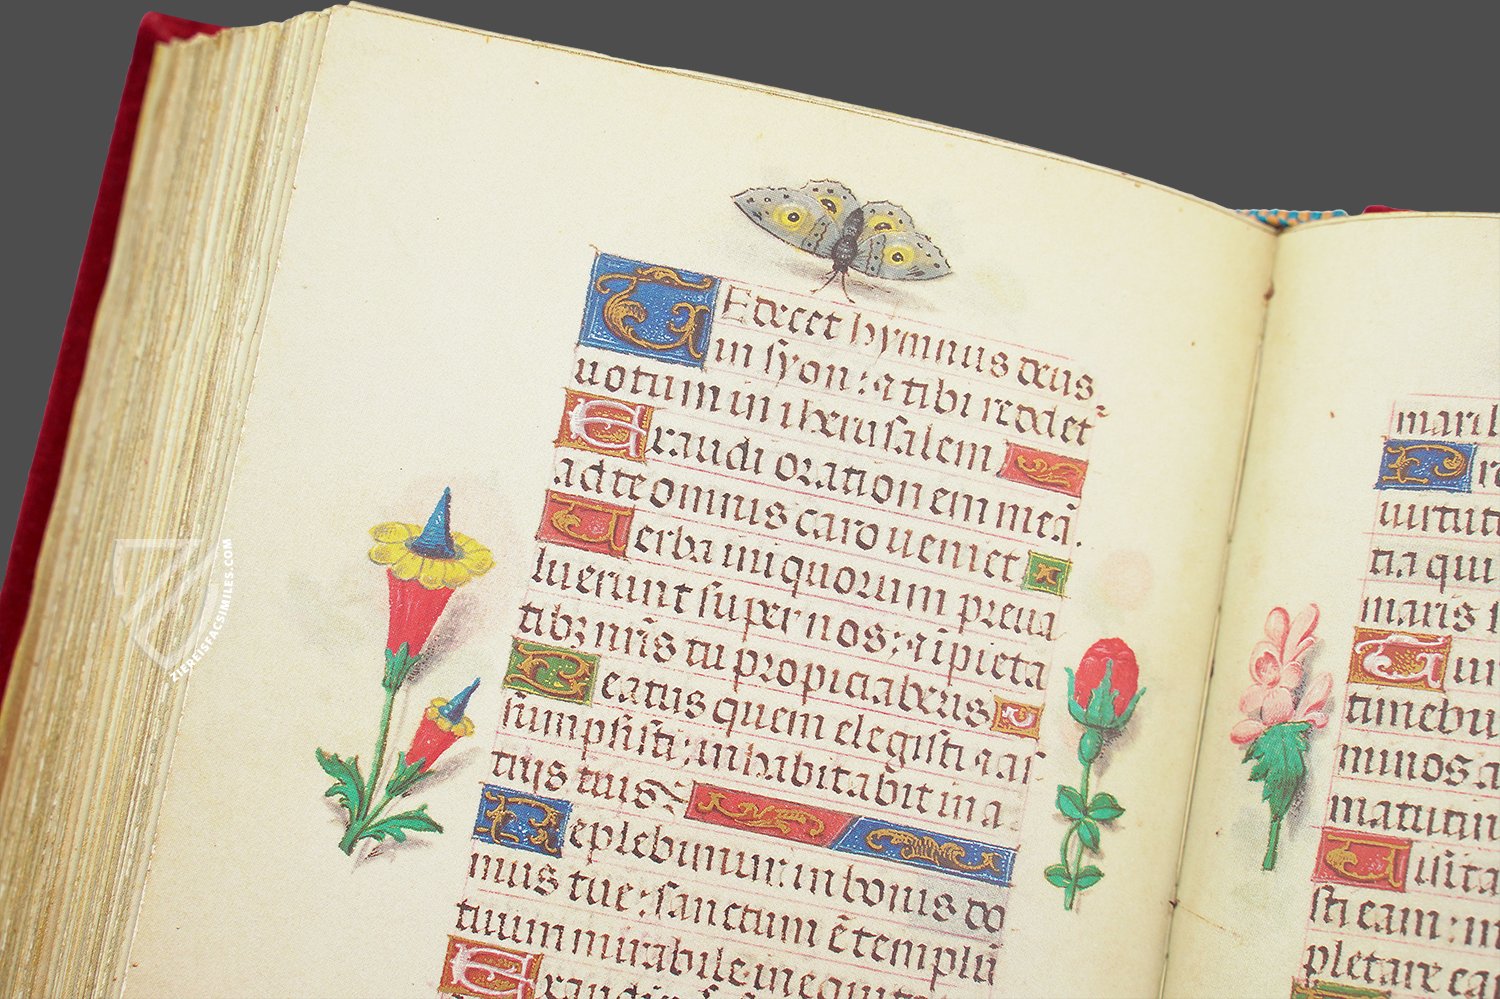 TE decet hymnus deus
in syon: ⁊ tibi reddet
uotum in iherusalem
Exaudi orationem meã.
ad te omnis caro ueniet
Uerba iniquorum preua
luerunt super nos: ⁊ ipieta
tibꝫ nr̃is tu propiciaberis
Beatus quem elegisti ⁊ as
sumpsisti: inhabitabit in a
triis tuis
Replebimur in bonis do
mus tue: sanctum ẽ templũ
tuum mirabile in equitate
Exaudi
maril
uirtut
tia qui
maris s
timebu
minos a
matutin
Uisita
sti eam: in
pletare ea
ZIEREISFACSIMILES.COM